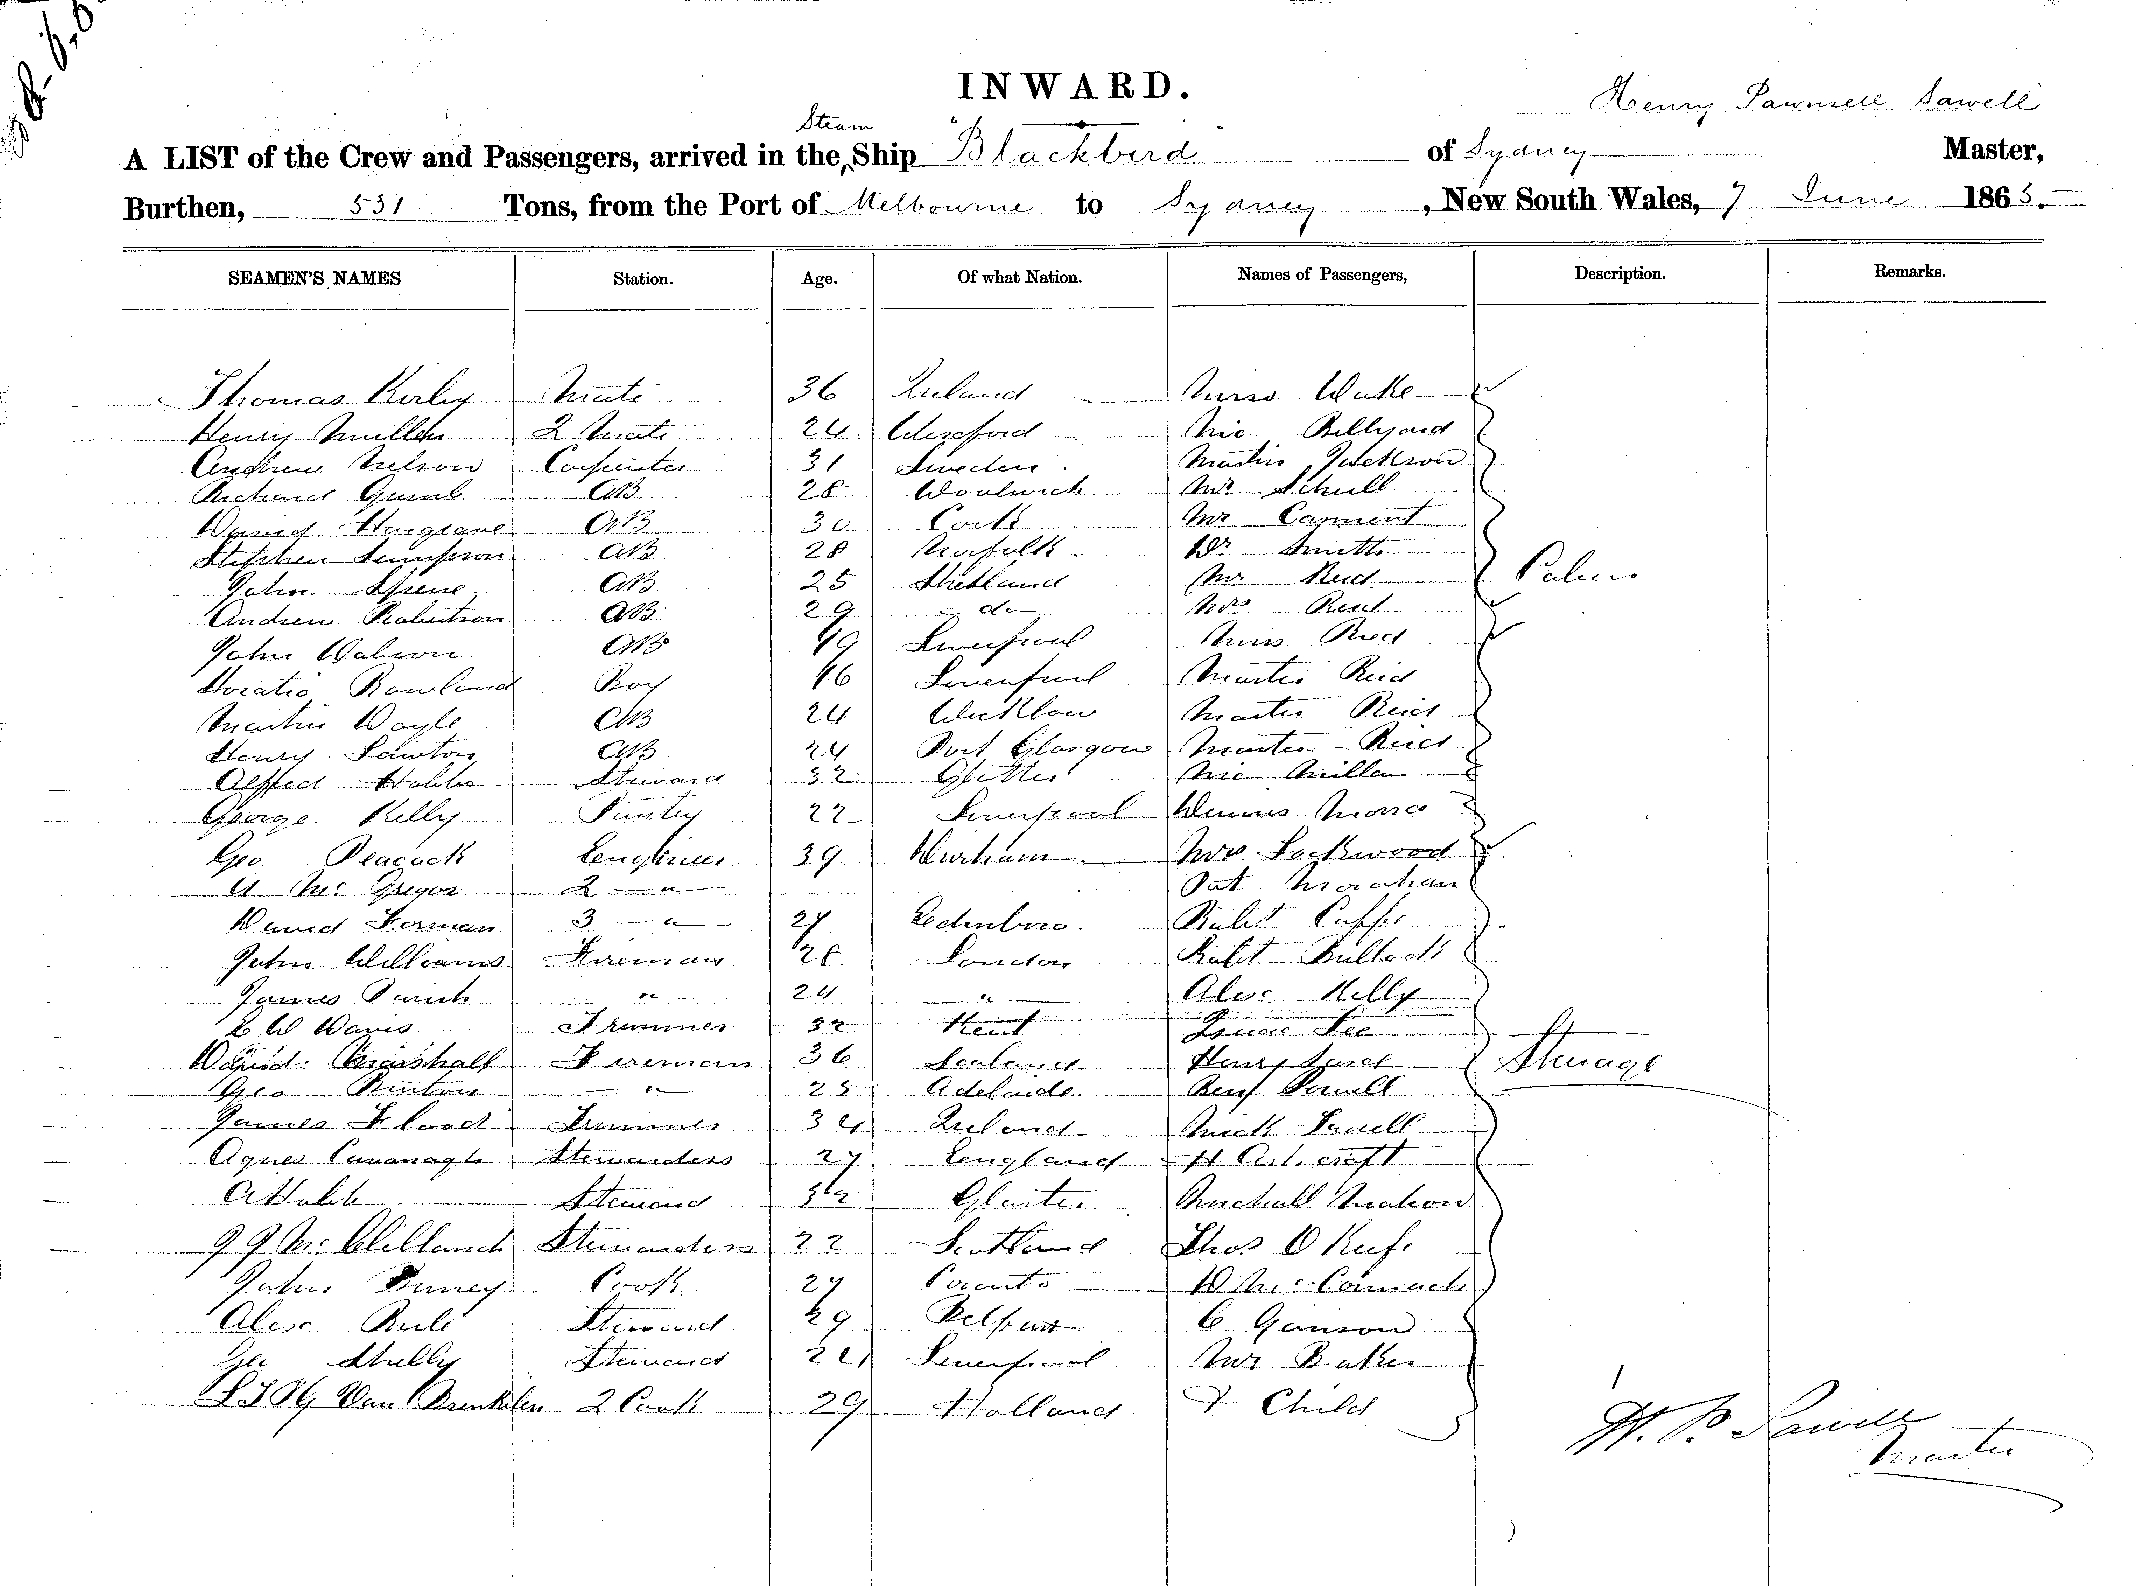 8.6.6
INWARD.
Henry Pawmell Sawell
Steam
A LIST of the Crew and Passengers, arrived in the Ship "Blackbird" of Sydney Master,
Burthen, 531 Tons, from the Port of Melbourne to Sydney, New South Wales, 7 June 1865.
SEAMEN'S NAMES Station. Age. Of what Nation. Names of Passengers, Description. Remarks.
Thomas Kirby Mate 36 Ireland Miss Wake
Henry Miller 2 Mate 24 Wexford Mr Billyard
Andrew Nelson Carpenter 31 Sweden Martin Jackson
Richard AB 28 Woolwich Mr Schull
David Hargrave AB 30 Cork Mr Carment
Stephen Simpson AB 28 Norfolk Dr Smith
John AB 25 Shetland Mr Reid
Andrew Robertson AB 29 do Mrs Reid
John Watson AB 49 Liverpool Miss Reid
Horatio Rowland Boy 16 Liverpool Master Reid
Martin Doyle AB 24 Wicklow Master Reid
Henry Lawton AB 24 Port Glasgow Master Reid
Alfred Hobbs Steward 32 Mr Miller
George Kelly Pantry 22 Liverpool Dennis
Geo Peacock Engineer 39 Durham Mrs Lockwood
A McGregor 2 " Pat
David Forman 3 " 27 Edinburo Robt
John Williams Fireman 28 London Robt Bullock
James " 24 " Alex Kelly
E W Davis Trimmer 32 Kent Lee
David Marshall Fireman 36 Henry
Geo Hinton " 25 Adelaide Benj Powell
James Flood Trimmer 34 Ireland Mick
Agnes Cavanagh Stewardess 27 England H Ashcroft
A Hobb Steward 32 Gloster Michall Mahon
McClelland Stewardess 22 Scotland Thos O Keefe
John Cook 27 Toronto D McCormack
Alex Steward 29 Belfast C Ganson
Geo Steward 24 Liverpool Mrs Baker
Van 2 Cook 29 Holland & Child
Saloon
Steerage
H. P. Sawell
Master